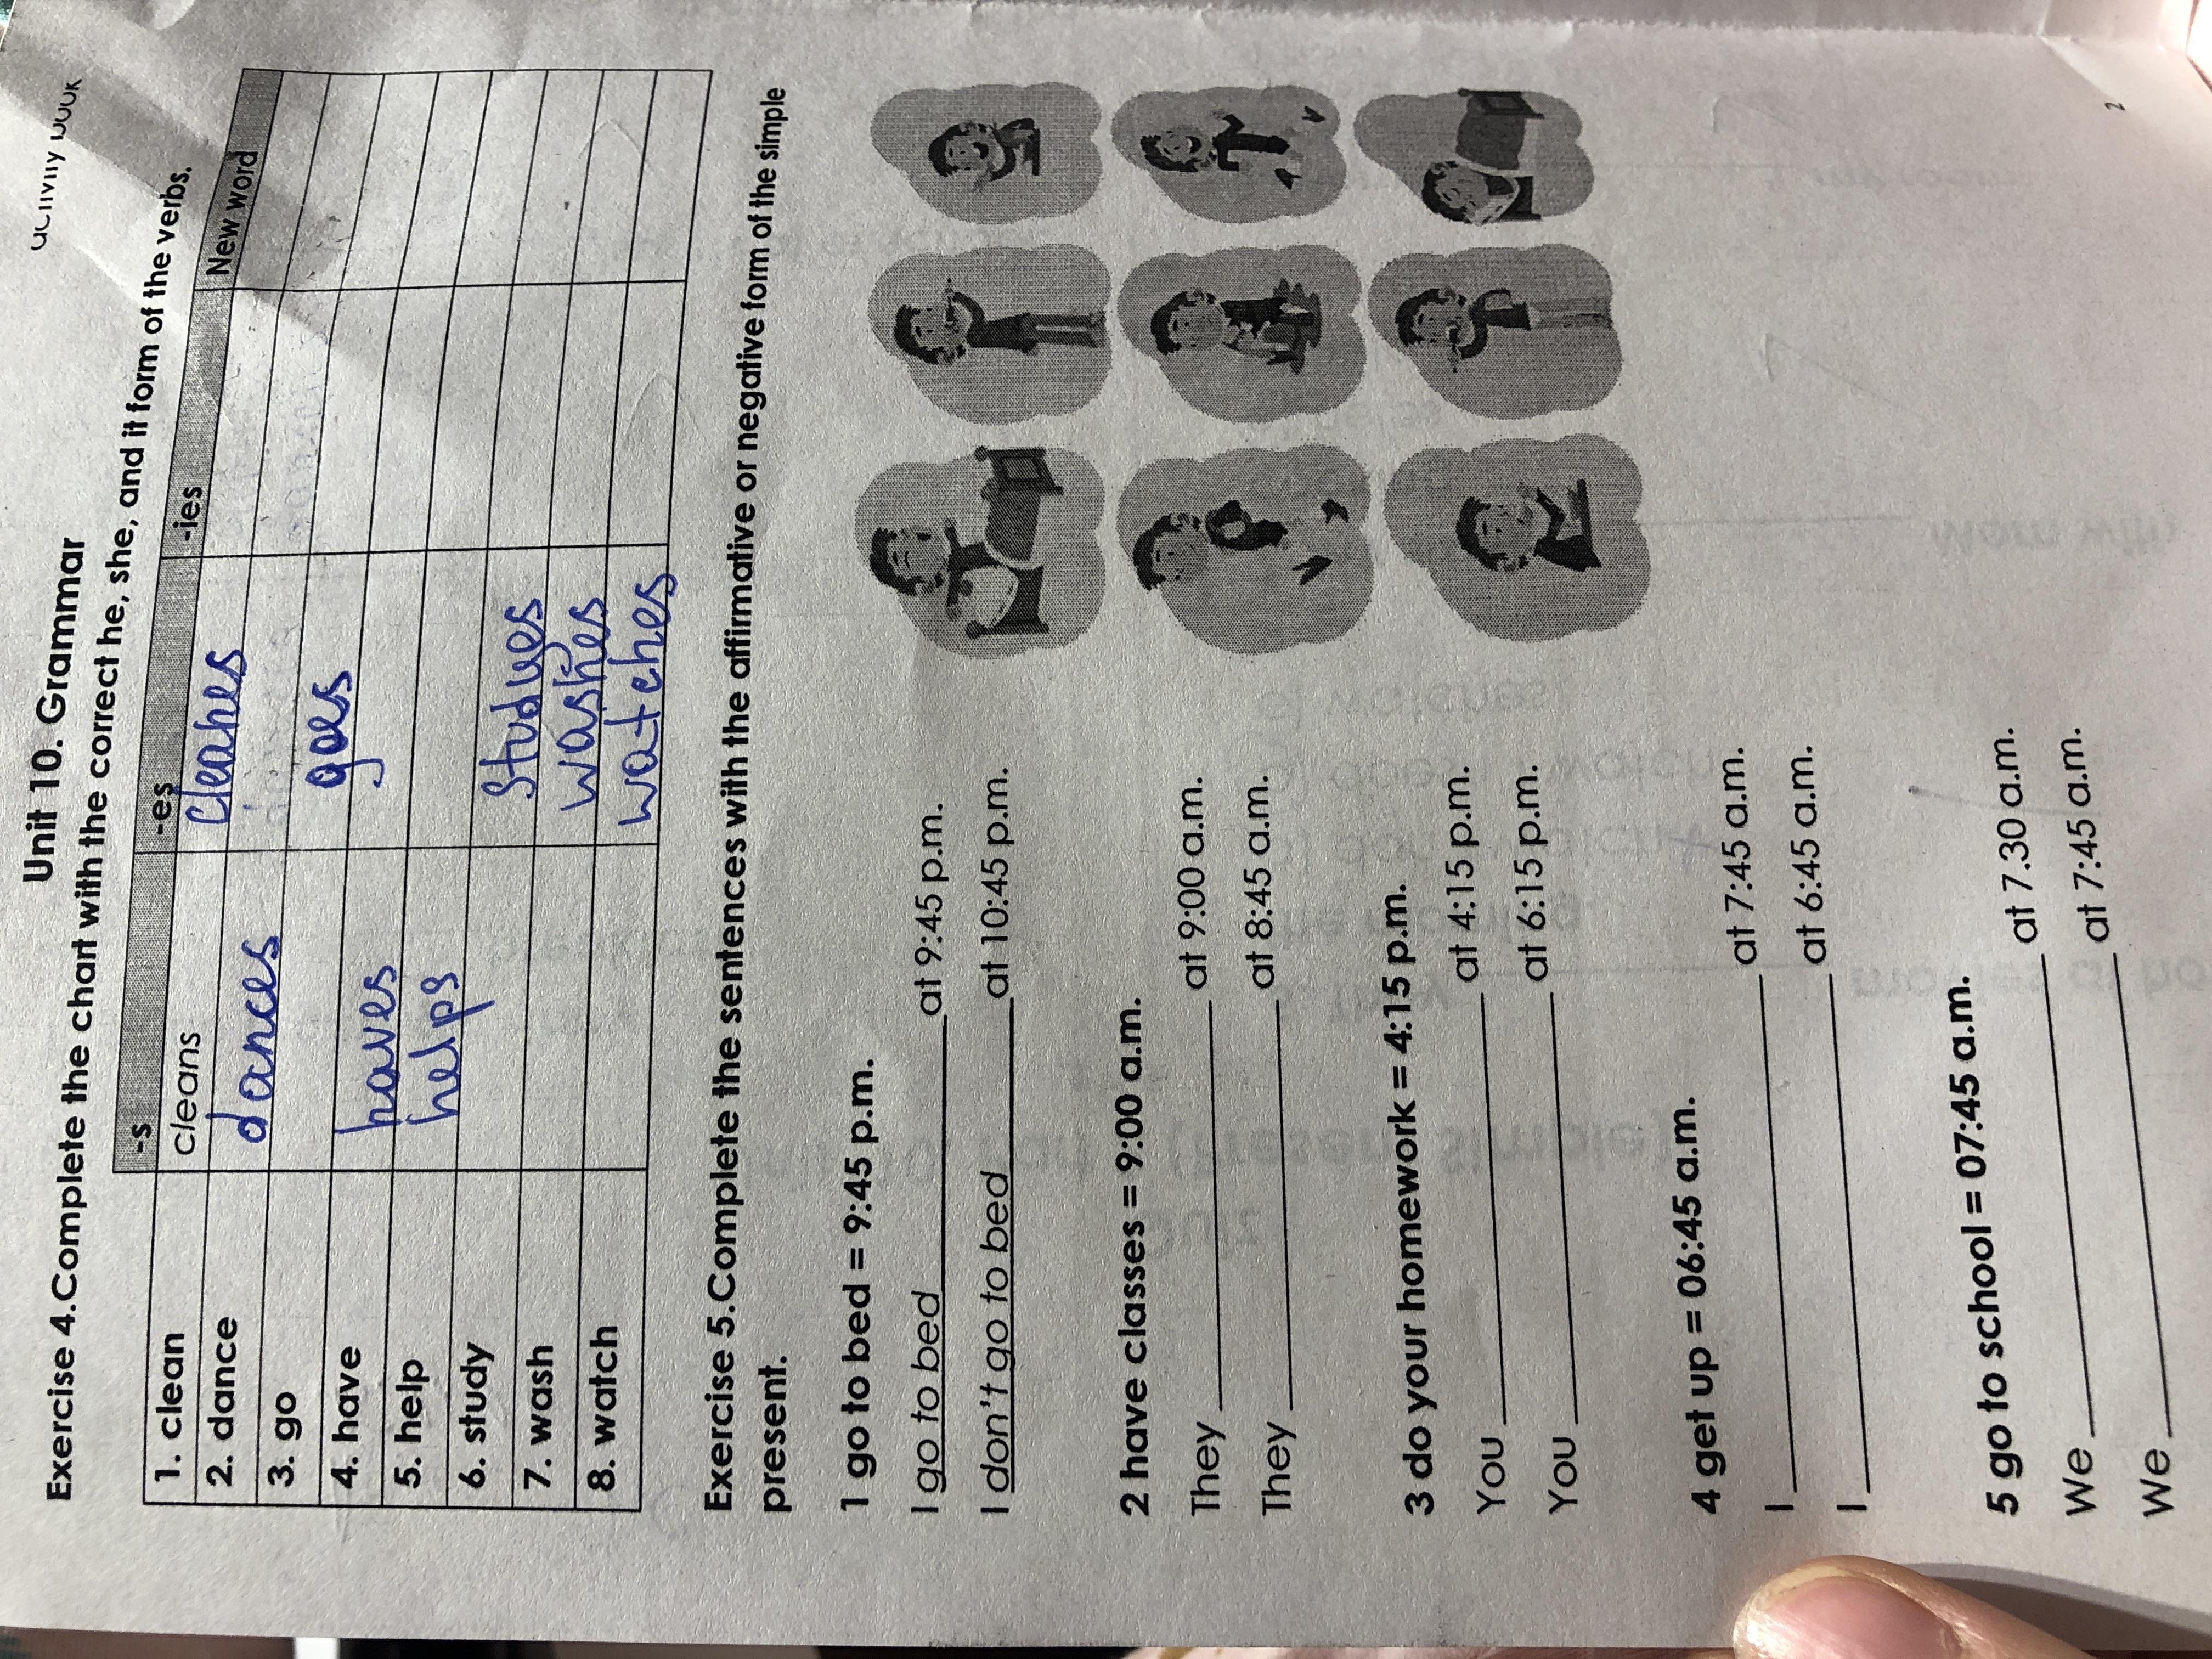 activity book
Unit 10. Grammar
Exercise 4.Complete the chart with the correct he, she, and it form of the verbs.
-s -es -ies New word
1. clean cleans cleanes
2. dance dances
3. go goes
4. have haves
5. help helps
6. study studues
7. wash washes
8. watch watches
Exercise 5.Complete the sentences with the affirmative or negative form of the simple
present.
1 go to bed = 9:45 p.m.
I go to bed at 9:45 p.m.
I don't go to bed at 10:45 p.m.
2 have classes = 9:00 a.m.
They at 9:00 a.m.
They at 8:45 a.m.
3 do your homework = 4:15 p.m.
You at 4:15 p.m.
You at 6:15 p.m.
4 get up = 06:45 a.m.
I at 7:45 a.m.
I at 6:45 a.m.
5 go to school = 07:45 a.m.
We at 7.30 a.m.
We at 7:45 a.m.
2